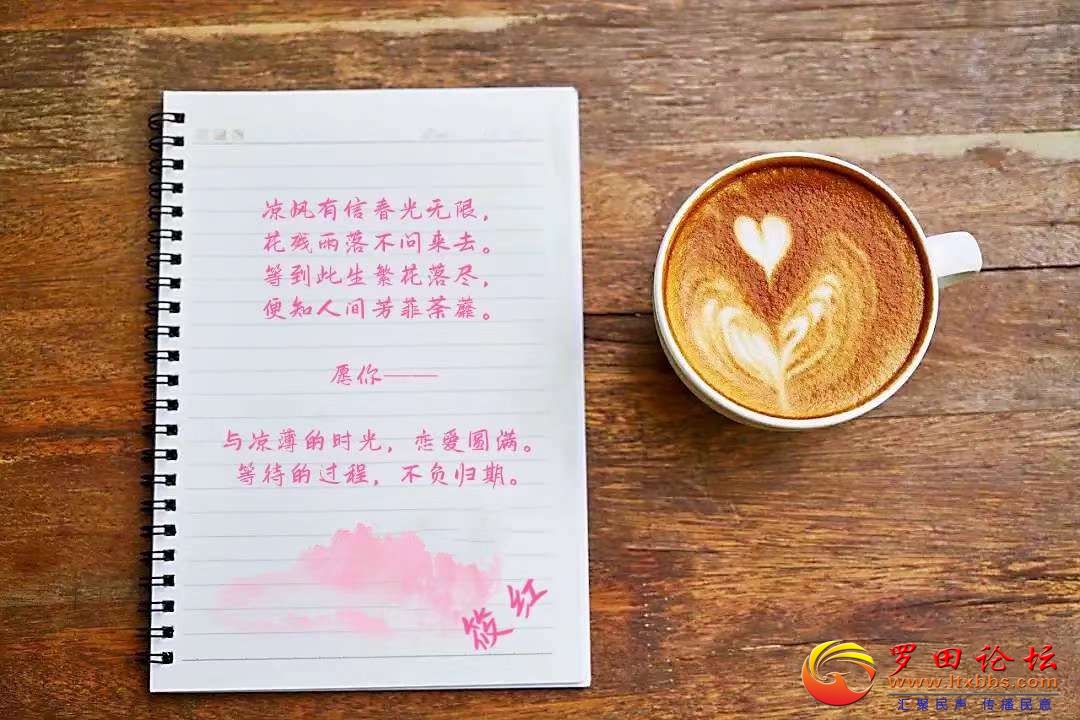 凉风有信春光无限，
花残雨落不问来去。
等到此生繁花落尽，
便知人间芳菲荼蘼。
愿你——
与凉薄的时光，恋爱圆满。
等待的过程，不负归期。
筱红
罗田论坛
www.ltxbbs.com
汇聚民声 传播民意